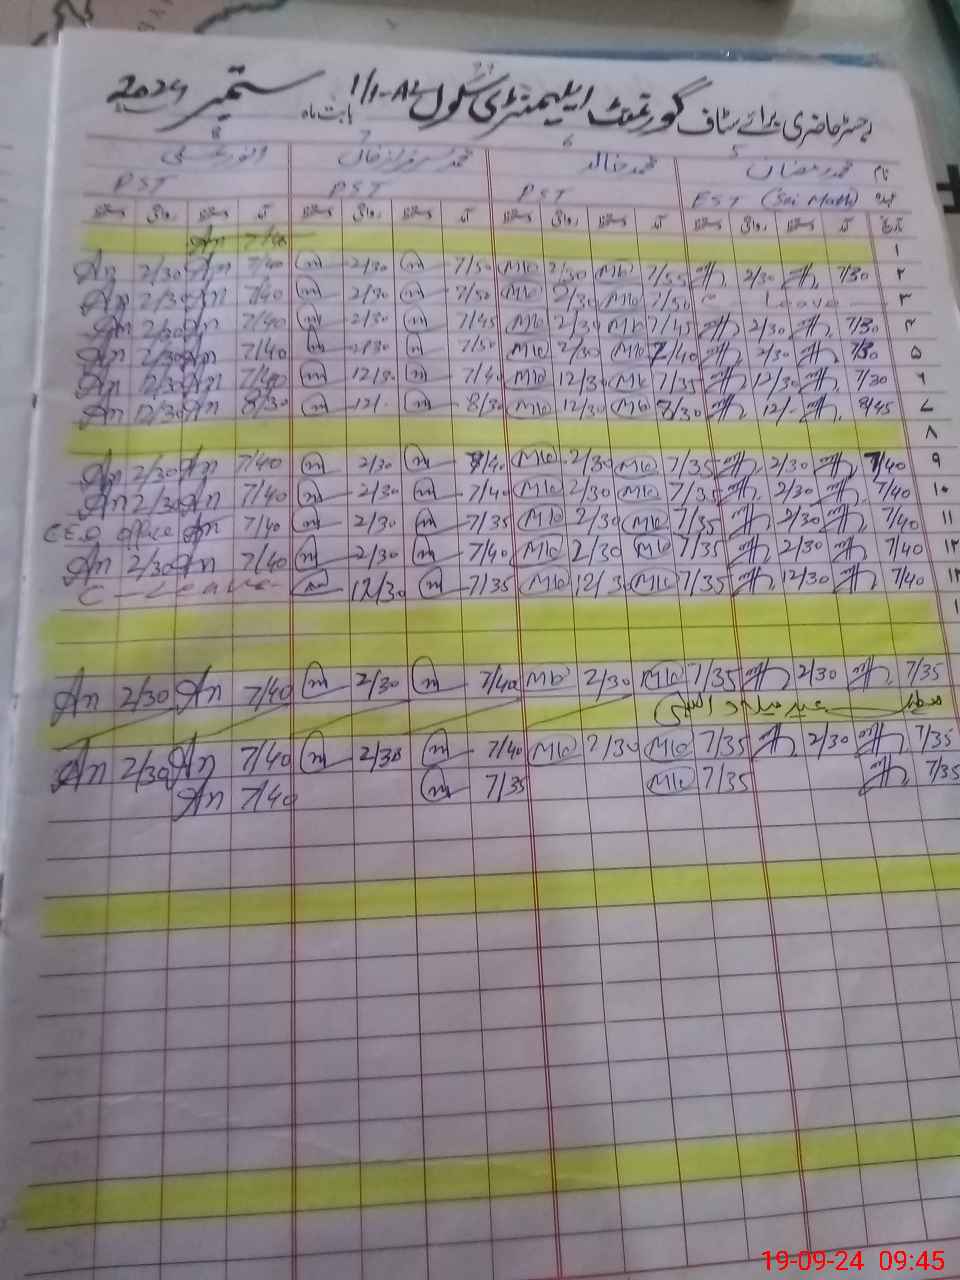 رجسٹر حاضری برائے سٹاف گورنمنٹ ایلیمنٹری سکول 1/1-AL بابت ماہ ستمبر 2024
5 6 7 8
نام محمد رمضان محمد خالد محمد سرفراز خان
عہدہ EST (Sci Math) PST PST PST
تاریخ آمد دستخط روانگی دستخط آمد دستخط روانگی دستخط آمد دستخط روانگی دستخط آمد دستخط روانگی دستخط
۱ 7/40 An
۲ 7/30 2/30 7/55 Mk 2/30 Mk 7/50 m 2/30 m 7/40 An 2/30 An
۳ Leave 7/50 Mk 2/30 Mk 7/50 m 2/30 m 7/40 An 2/30 An
۴ 7/30 2/30 7/45 Mk 2/30 Mk 7/45 m 2/30 m 7/40 An 2/30 An
۵ 7/30 2/30 7/40 Mk 2/30 Mk 7/50 m 2/30 m 7/40 An 2/30 An
۶ 7/30 12/30 7/35 Mk 12/30 Mk 7/4 m 12/30 m 7/40 An 12/30 An
۷ 8/45 12/- 8/30 Mk 12/30 Mk 8/30 m 12/- m 8/30 An 12/30 An
۸
۹ 7/40 2/30 7/35 Mk 2/30 Mk 7/40 m 2/30 m 7/40 An 2/30 An
۱۰ 7/40 2/30 7/35 Mk 2/30 Mk 7/40 m 2/30 m 7/40 An 2/30 An
۱۱ 7/40 2/30 7/35 Mk 2/30 Mk 7/35 m 2/30 m 7/40 An C.E.O office
۱۲ 7/40 2/30 7/35 Mk 2/30 Mk 7/40 m 2/30 m 7/40 An 2/30 An
۱۳ 7/40 12/30 7/35 Mk 12/3 Mk 7/35 m 12/30 m C - Leave
7/35 2/30 7/35 Mk 2/30 Mk 7/40 m 2/30 m 7/40 An 2/30 An
تعطیل عید میلاد النبی
7/35 2/30 7/35 Mk 2/30 Mk 7/40 m 2/30 m 7/40 An 2/30 An
7/35 7/35 Mk 7/35 m 7/40 An
19-09-24 09:45